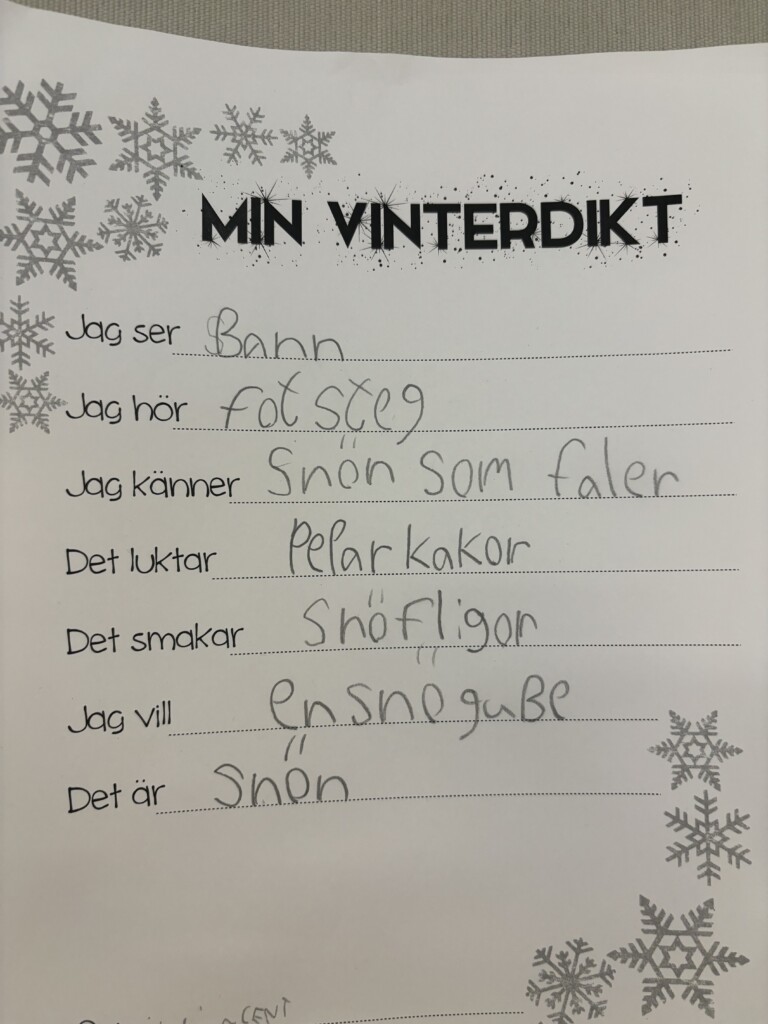 MIN VINTERDIKT
Jag ser Bann
Jag hör fotsteg
Jag känner Snön som faler
Det luktar Pelarkakor
Det smakar Snöfligor
Jag vill ensnöguBe
Det är Snön